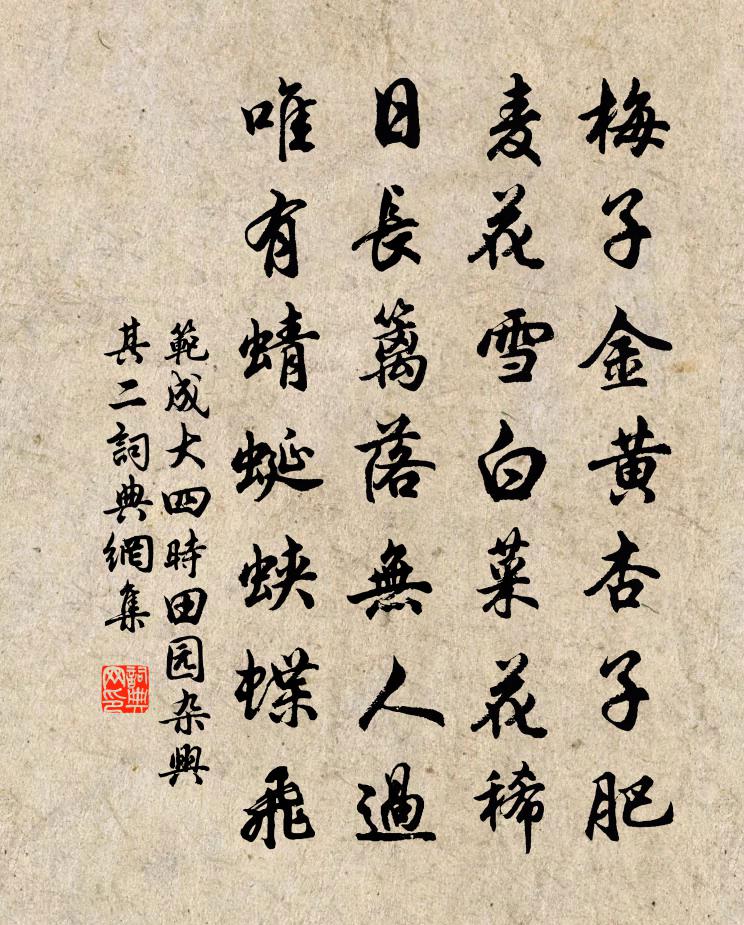 梅子金黄杏子肥
麦花雪白菜花稀
日長籬落無人過
唯有蜻蜓蛱蝶飛
範成大四時田园杂興
其二詞典網集
詞典网印